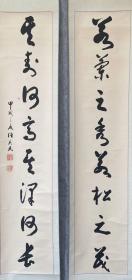 若蘭之秀若松之茂
其壽何高其澤何長
甲戌